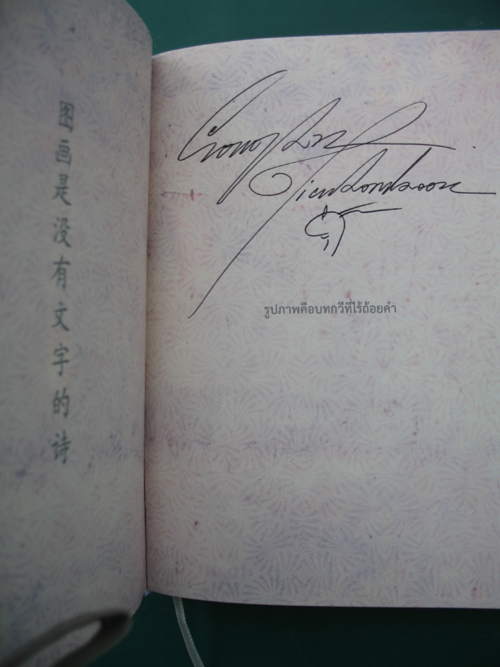 图画是没有文字的诗
รูปภาพคือบทกวีที่ไร้ถ้อยคำ